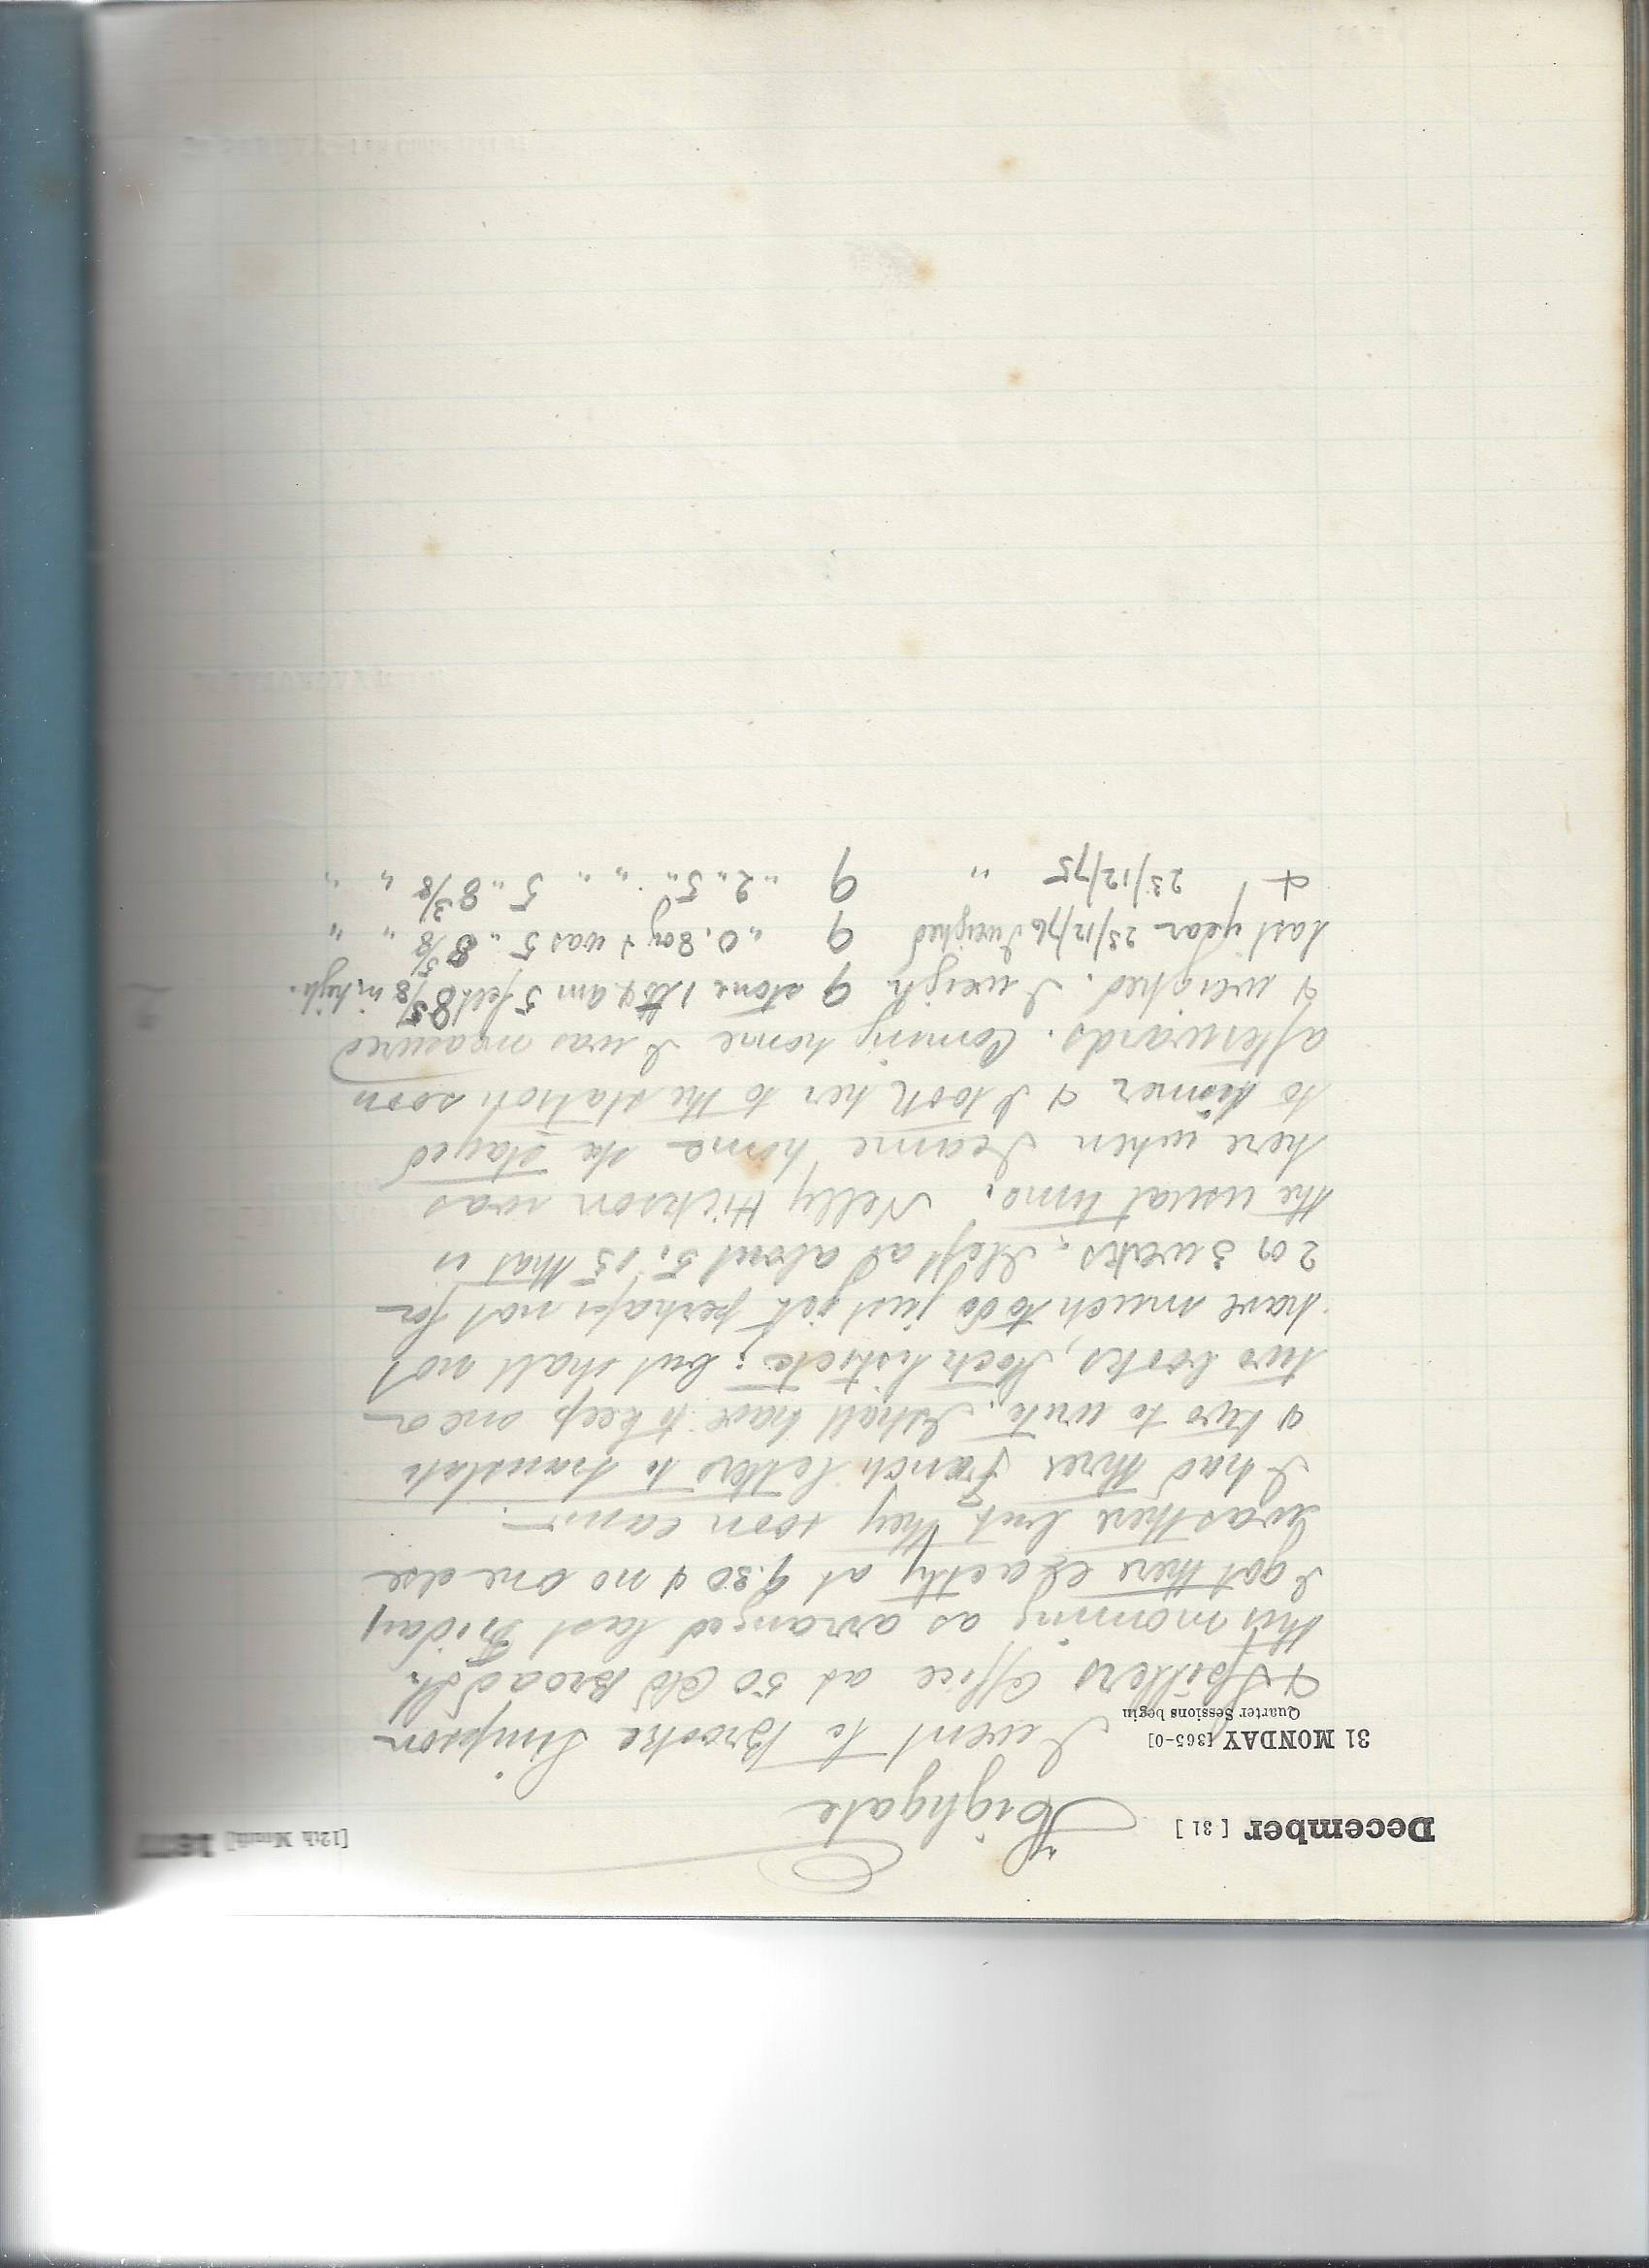 December [31] [12th Month] 1877
Highgate
31 MONDAY [365-0] I went to Brooke Simpson
Quarter Sessions begin
& Spillers office at 50 Old Broad St.
this morning as arranged last Friday
I got there exactly at 9.30 & no one else
was there but they soon came.
I had three French letters to translate
& two to write. I shall have to keep one or
two books, Stock lists &c; but shall not
have much to do just yet perhaps not for
2 or 3 weeks. I left at about 5.15 that is
the usual time. Nelly Hickson was
here when I came home she stayed
to dinner & I took her to the station soon
afterwards. Coming home I was measured
& weighed. I weigh 9 stone 1 lb & am 5 feet 8 5/8 in high.
last year 23/12/76 I weighed 9 " 0. 8oz & was 5 " 8 5/8 " "
& 23/12/75 " 9 " 2 " 5 " " " 5 " 8 3/8 " "